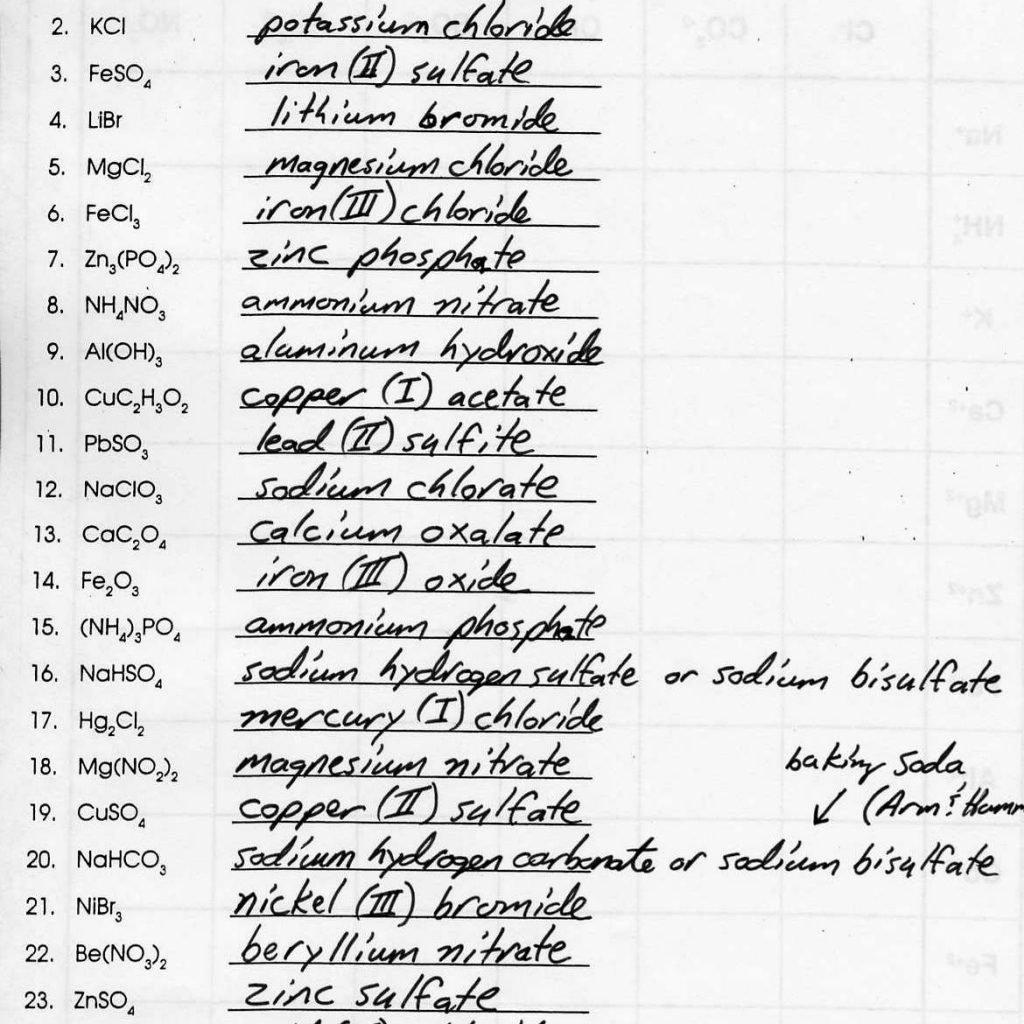 2. KCl potassium chloride
3. FeSO₄ iron (II) sulfate
4. LiBr lithium bromide
5. MgCl₂ magnesium chloride
6. FeCl₃ iron (III) chloride
7. Zn₃(PO₄)₂ zinc phosphate
8. NH₄NO₃ ammonium nitrate
9. Al(OH)₃ aluminum hydroxide
10. CuC₂H₃O₂ copper (I) acetate
11. PbSO₃ lead (II) sulfite
12. NaClO₃ sodium chlorate
13. CaC₂O₄ calcium oxalate
14. Fe₂O₃ iron (III) oxide
15. (NH₄)₃PO₄ ammonium phosphate
16. NaHSO₄ sodium hydrogen sulfate or sodium bisulfate
17. Hg₂Cl₂ mercury (I) chloride
18. Mg(NO₂)₂ magnesium nitrate baking soda
19. CuSO₄ copper (II) sulfate ↙ (Arm & Hamm
20. NaHCO₃ sodium hydrogen carbonate or sodium bisulfate
21. NiBr₃ nickel (III) bromide
22. Be(NO₃)₂ beryllium nitrate
23. ZnSO₄ zinc sulfate